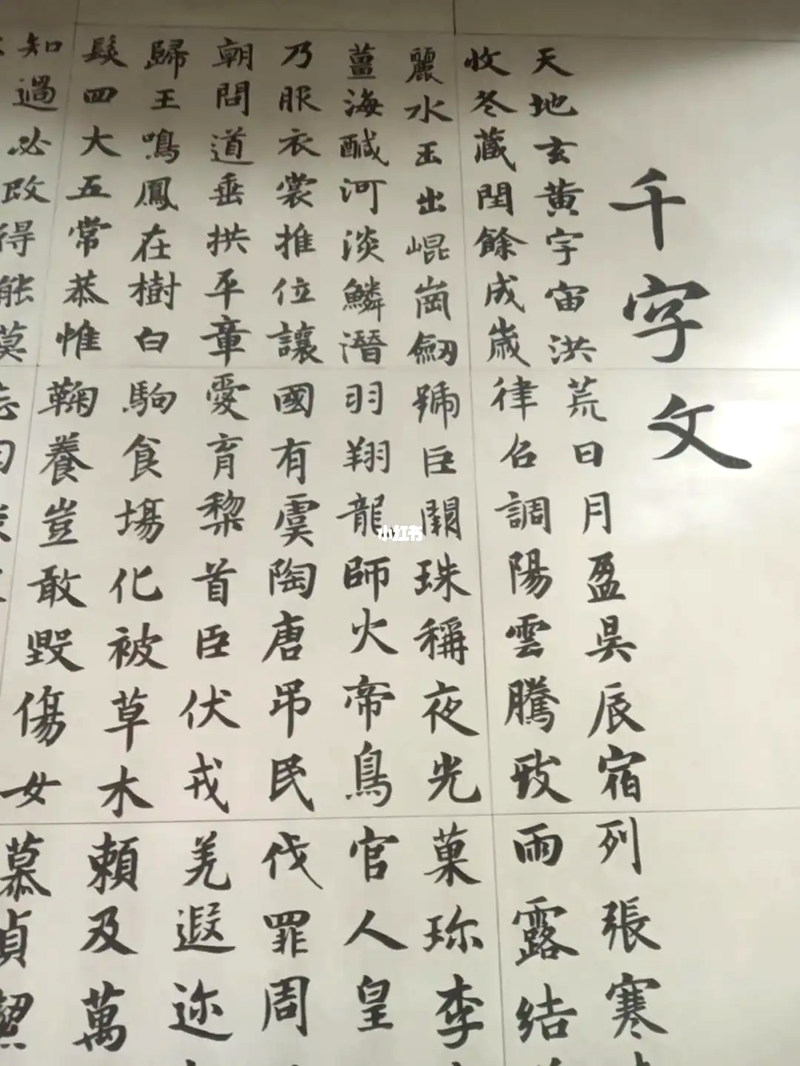 千字文
天地玄黄宇宙洪荒日月盈昃辰宿列張寒
收冬藏閏餘成歲律召調陽雲騰致雨露結
麗水玉出崐崗劒號巨闕珠稱夜光菓珎李
薑海醎河淡鱗潛羽翔龍師火帝鳥官人皇
乃服衣裳推位讓國有虞陶唐吊民伐罪周
朝問道垂拱平章愛育黎首臣伏戎羌遐迩
歸王鳴鳳在樹白駒食場化被草木賴及萬
髮四大五常恭惟鞠養豈敢毀傷女慕貞絜
知過必改得能莫忘
小红书